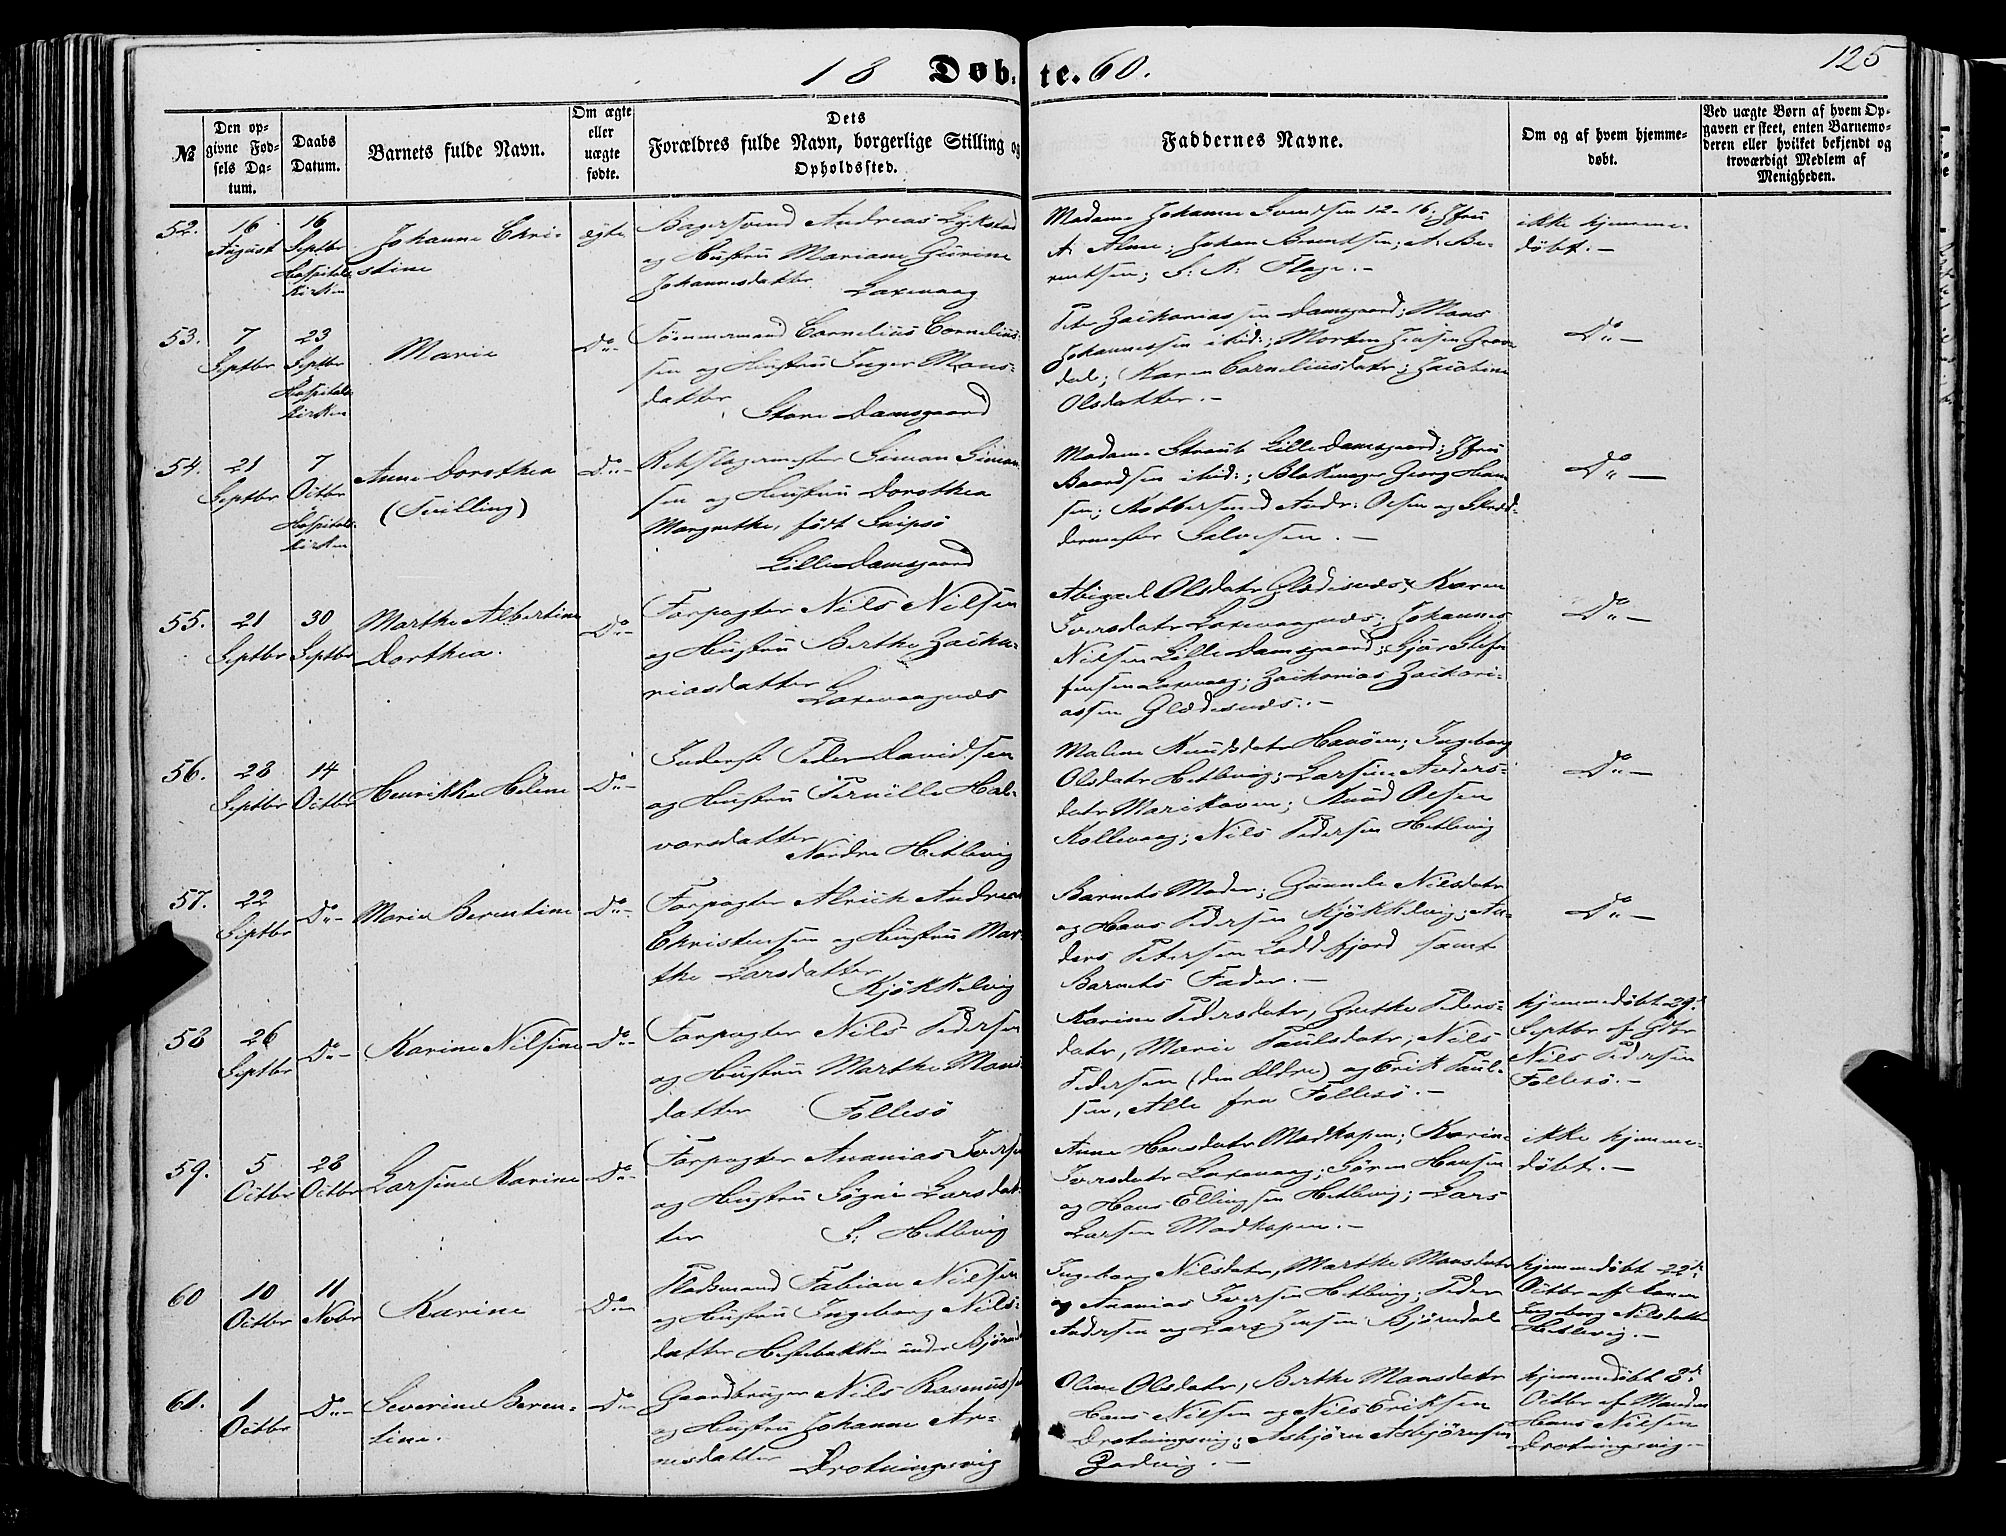 125
18 Døbte. 60.
№
Den opgivne Fødsels Datum.
Daabs Datum.
Barnets fulde Navn.
Om ægte eller uægte fødte.
Dets Forældres fulde Navn, borgerlige Stilling og Opholdssted.
Faddernes Navne.
Om og af hvem hjemmedøbt.
Ved uægte Børn af hvem Opgaven er skeet, enten Barnemoderen eller hvilket bekjendt og troværdigt Medlem af Menigheden.
52.
16 August
16 Septbr Hospitalskirken
Johanne Christine
egte
Bagersvend Andreas
og Hustru Mariane Gurine
Johannesdatter Laxevaag
Madame Johanne Svendsen 12-16; Jfru
A: Alme; Johan Berentsen; A: Be-
rentsen; S: A: Flage.-
ikke hjemme-
døbt.-
53.
7 Septbr
23 Septbr Hospitalskirken
Marie
Do-
Tømmermand Cornelius Cornelius-
sen og Hustru Inger Mons-
datter
Store Damsgaard
Peter Zackariassen Damsgaard; Mons
Johannessen ibid:; Morten Jensen Grøn-
dal; Karen Corneliusdatr; Jacobine
Olsdatter.-
Do-
54.
21 Septbr
7 Octbr Hospitalskirken
Anne Dorothea
(Tvilling)
Do-
Rebslagermester Simon Simon-
sen og Hustru Dorothea
Margrethe, født
Lille Damsgaard
Madame Lille Damsgaard; Jfru
Baardsen ibid:; Blokmager Georg Han-
sen; Kobbersmed Andr: Olsen og Skræd-
dermester Salvesen.-
Do-
55.
21 Septbr
30 Septbr
Marthe Albertine
Dorthea.
Do-
Forpagter Nils Nilsen
og Hustru Berthe Zacka-
riasdatter
Laxevaagnæs
Abigael Olsdatr Gledisnæs; Karen
Iversdatr Laxevaagnæs; Johannes
Nielsen Lille Damsgaard; Stef-
fensen Laxevaag; Zackarias Zackari-
assen Gledisnæs.-
Do-
56.
28 Septbr
14 Octbr
Henrikke Helene
Do-
Inderst Peder Davidsen
og Hustru Pernille Hal-
vorsdatter
Nordre Hetlevig
Malene Knudsdatr Hanøen; Ingeborg
Olsdatr Hetlevig; Larsine Anders-
datr Marikoven; Knud Olsen
Kollevaag; Nils Pedersen Hetlevig
Do-
57.
22 Septbr
Do-
Marie Berentine
Do-
Forpagter Alrich Andreas
Christensen og Hustru Mar-
the Larsdatter
Kjøkkelvig
Barnets Moder; Gunnele Nilsdatr
og Hans Pedersen Kjøkkelvig; An-
ders Petersen Loddefjord samt
Barnets Fader.-
Do-
58
26 Septbr
Do-
Karine Nilsine
Do-
Forpagter Nils Pedersen
og Hustru Marthe Mons-
datter Follesø
Karine Pedersdatr, Grethe Peders-
datr, Marie Paulsdatr, Nils
Pedersen (den Ældre) og Erik Paul-
sen, Alle fra Follesø.-
hjemmedøbt 29d
Septbr af Gdbr
Nils Pedersen
Follesø.-
59.
5 Octbr
28 Octbr
Larsine Karine
Do-
Forpagter Ananias Iversen
og Hustru Søgni Larsdat-
ter S: Hetlevig
Anne Hansdatr Madkopen; Karine
Iversdatr Laxevaag; Søren Hansen
og Hans Ellingsen Hetlevig; Lars
Larsen Madkopen.-
ikke hjemme-
døbt.-
60
10 Octbr
11 Novbr
Karine
Do-
Pladsmand Fabian Nielsen
og Hustru Ingeborg Nils-
datter Hestebakken under Bjørndal
Ingeborg Nilsdatr, Marthe Monsdatr
og Ananias Iversen Hetlevig; Peder
Andersen og Lars Jensen Bjørndal
hjemmedøbt 22d
Octbr af Konen
Ingeborg Nilsdatter
Hetlevig.-
61.
1 Octbr
Do-
Severine Beren-
tine.
Do-
Gaardbruger Nils Rasmussen
og Hustru Johanne Ar-
nesdatter
Drotningsvig
Oline Olsdatr, Berthe Monsdatr
Hans Nilsen og Nils Eriksen
Drotningsvig; Asbjørn Asbjørnsen
Godvig.-
hjemmedøbt 8d
Octbr af Manden
Hans Nilsen
Drotningsvig.-